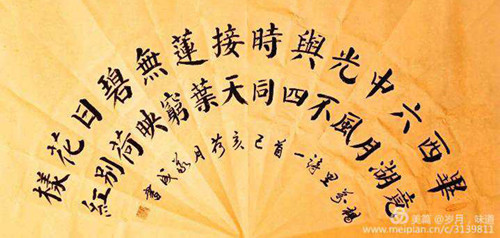 畢竟
西湖
六月
中風
光不
與四
時同
接天
蓮葉
無窮
碧映
日荷
花別
樣紅
楊萬里詩一首己亥荷月成書
美篇@岁月，味道
www.meipian.cn/c/3139811